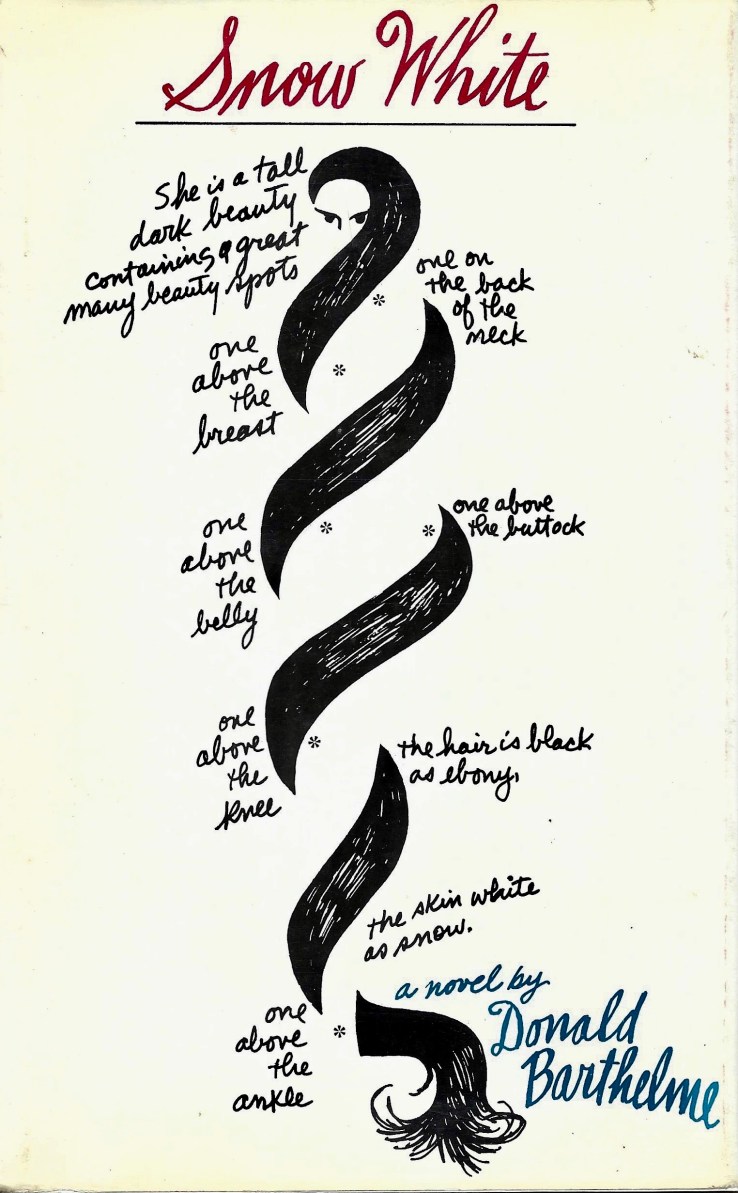 Snow White
She is a tall
dark beauty
containing a great
many beauty spots
one above
the
breast
one on
the back
of the
neck
one
above
the
belly
one above
the buttock
one
above
the
knee
the hair is black
as ebony,
the skin white
as snow.
one
above
the
ankle
a novel by
Donald
Barthelme